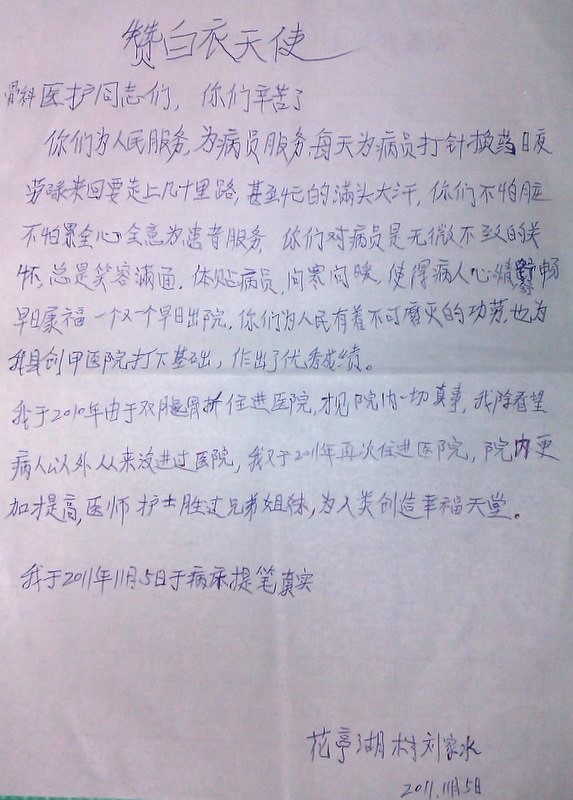 赞白衣天使
骨科医护同志们，你们辛苦了
你们为人民服务，为病员服务，每天为病员打针换药日夜
劳碌来回要走上几十里路，甚至的满头大汗，你们不怕脏
不怕累全心全意为患者服务，你们对病员是无微不至的关
怀，总是笑容满面，体贴病员，问寒问暖，使得病人心情舒畅
早日康福一个又一个早日出院，你们为人民有着不可磨灭的功劳，也为
我县创甲医院打下基础，作出了优秀成绩。
我于2010年由于双腿骨折住进医院，才见院内一切真事，我除看望
病人以外从来没进过医院，我又于2011年再次住进医院，院内更
加提高，医师护士胜过兄弟姐妹，为人类创造幸福天堂。
我于2011年11月5日于病床提笔真实
花亭湖村刘家水
2011.11月5日